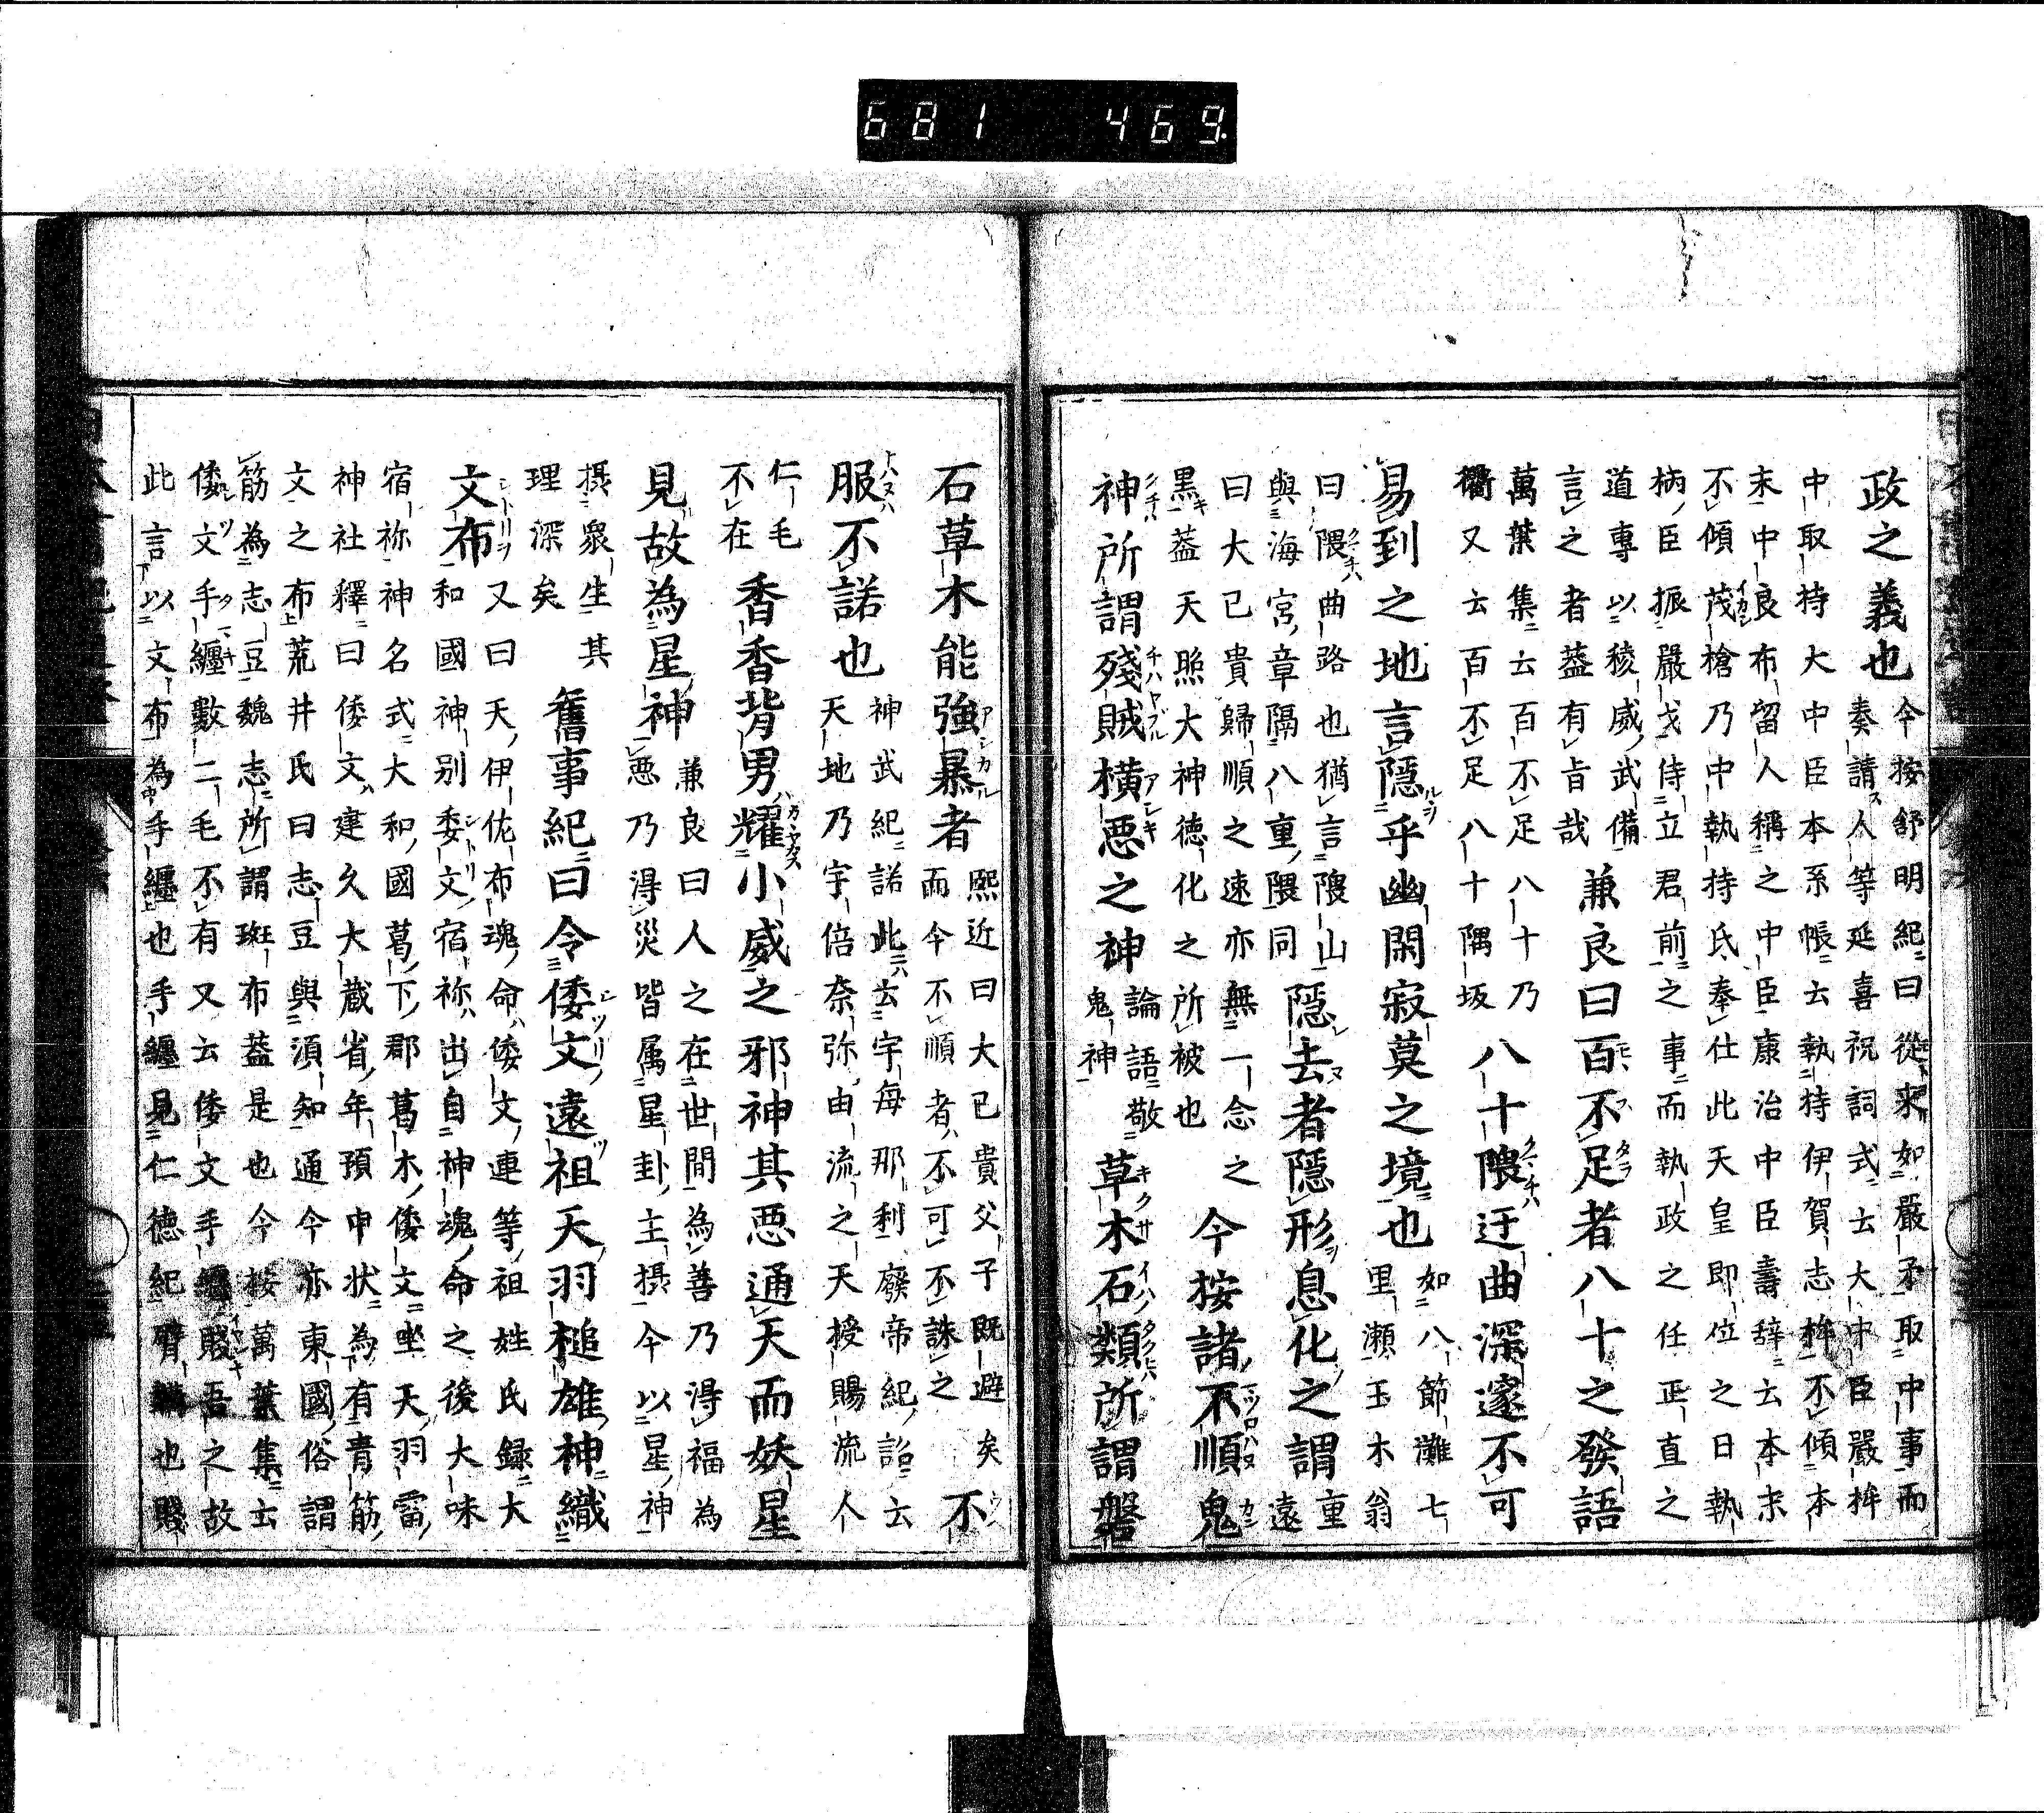 政之義也
今按舒明紀曰從来如嚴矛取中事而
奏請人等延喜祝詞式云大中臣嚴桙
中取持大中臣本系帳云執持伊賀志桙不傾本
末中良布留人稱之中臣康治中臣壽辞云本末
不傾茂槍乃中執持氏奉仕此天皇即位之日執
柄臣振嚴戈侍立君前之事而執政之任正直之
道專以稜威武備
言之者蓋有旨哉
兼良曰百不足者八十之發語
萬葉集云百不足八十乃
衢又云百不足八十隅坂
八十隈迂曲深邃不可
易到之地言隱乎幽閑寂莫之境也
如八節灘七
里瀬玉木翁
曰隈曲路也猶言隈山
與海宮章隔八重隈同
隱去者隱形息化之謂
重
遠
曰大己貴歸順之速亦無一念之
黒蓋天照大神徳化之所被也
今按諸不順鬼
神所謂殘賊横悪之神
論語敬
鬼神
草木石類所謂磐
石草木能強暴者
熙近曰大己貴父子既避矣
而今不順者不可不誅之
不
服不諾也
神武紀諾此云宇毎那利廢帝紀詔云
天地乃宇倍奈弥由流之天授賜流人
仁毛
不在
香香背男耀小威之邪神其悪通天而妖星
見故為星神
兼良曰人之在世間為善乃淂福為
悪乃淂災皆属星卦主摂今以星神
摂衆生其
理深矣
舊事紀曰令倭文遠祖天羽槌雄神織
文布
又曰天伊佐布魂命倭文連等祖姓氏録大
和國神別委文宿祢出自神魂命之後大味
宿祢神名式大和國葛下郡葛木倭文坐天羽雷
神社釋曰倭文建久大蔵省年預申状為有青筋
文之布荒井氏曰志豆與湏知通今亦東國俗謂
筋為志豆魏志所謂斑布蓋是也今按萬葉集云
倭文手纏數二毛不有又云倭文手纏賤吾之故
此言以文布為手纏也手纏見仁徳紀臂鞲也賤